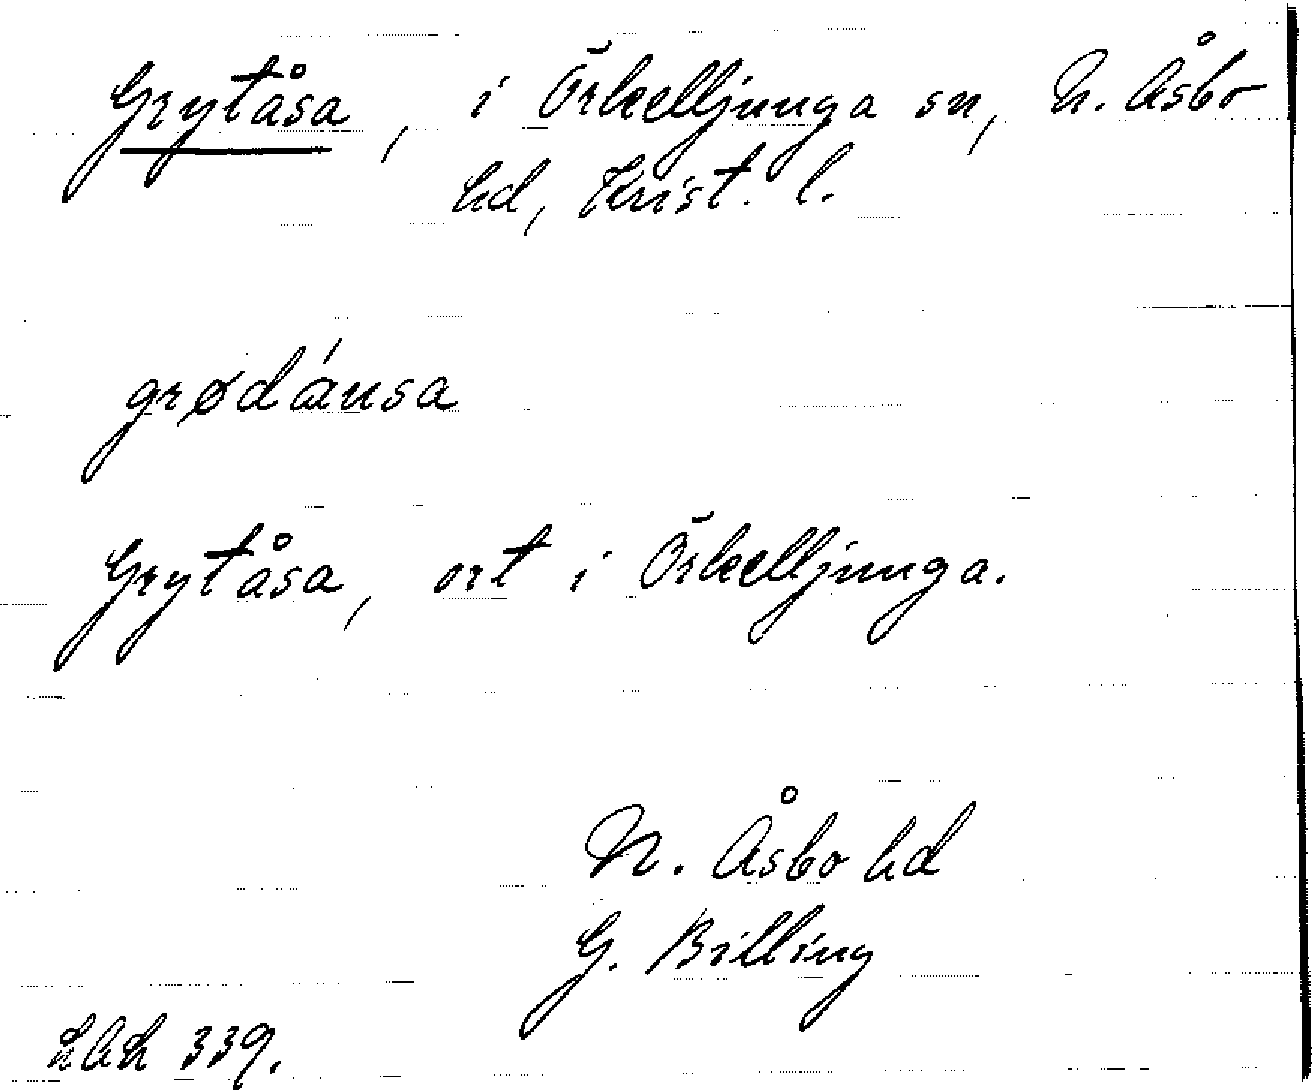 Grytåsa, i Örkelljunga sn, N. Åsbo
hd, Krist. l.
grødánsa
Grytåsa, ort i Örkelljunga.
N. Åsbo hd
G. Billing
339.